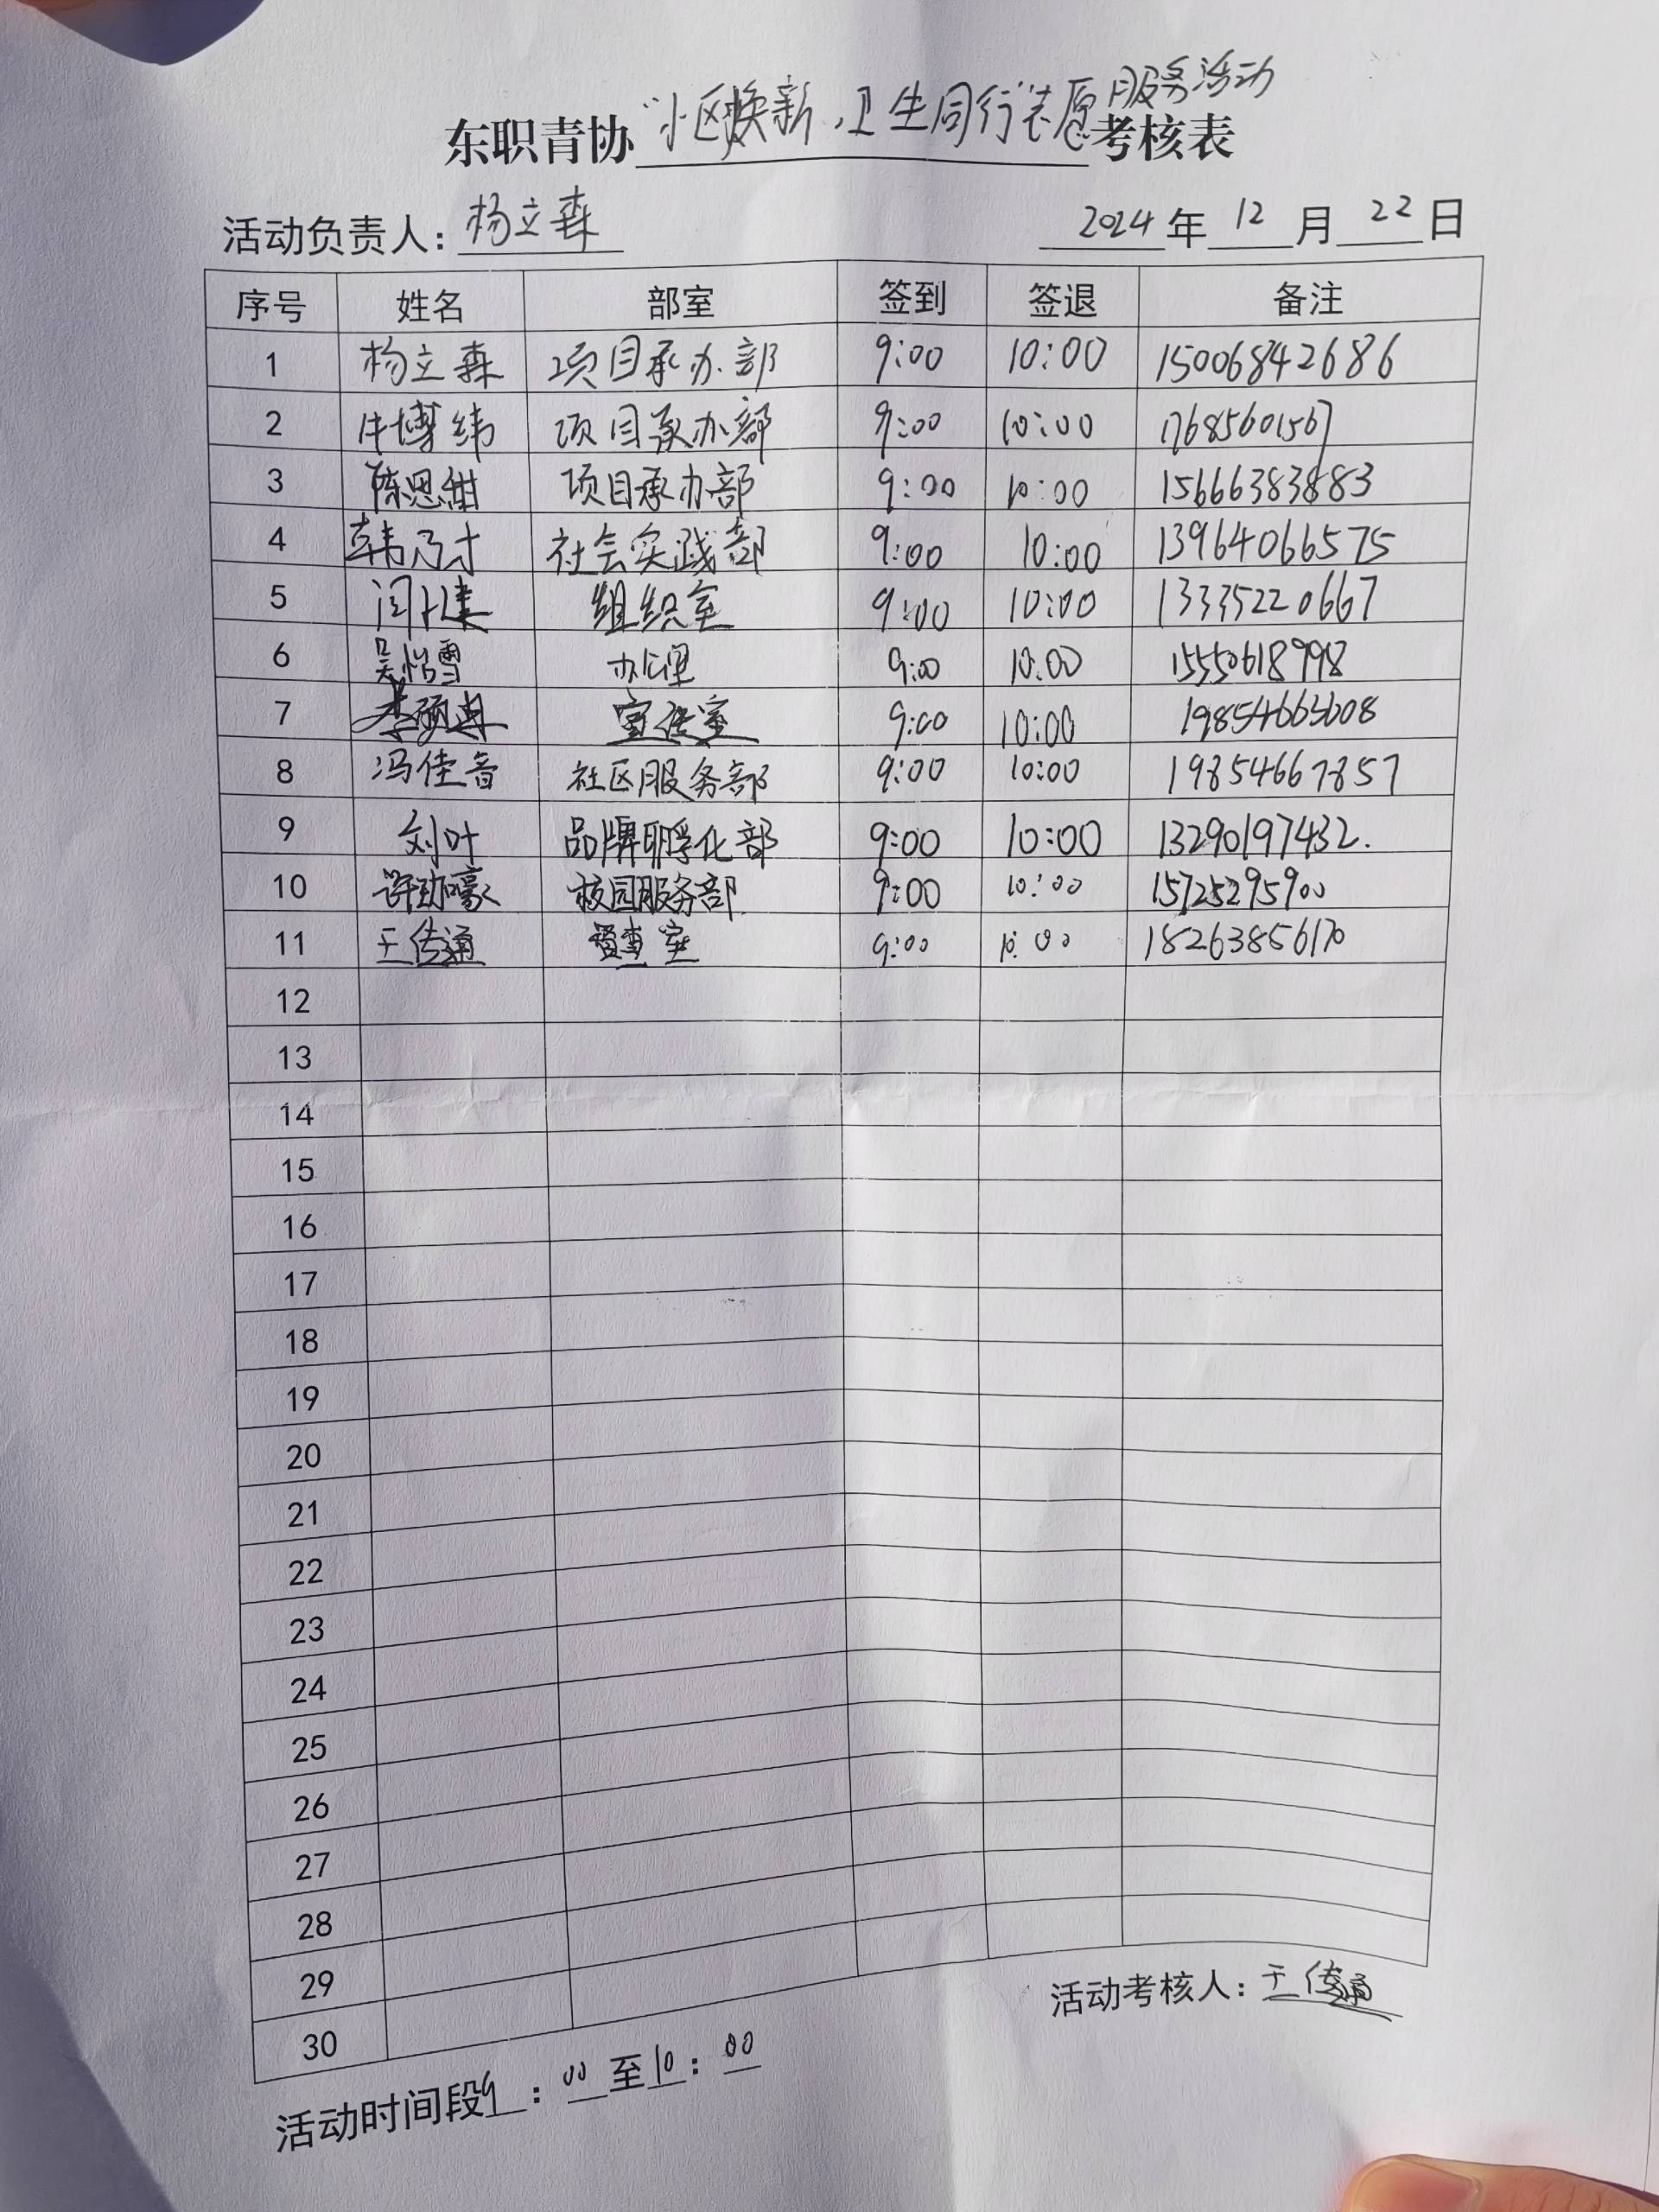 东职青协“小区焕新,卫生同行”志愿服务活动考核表
活动负责人:杨立森 2024年12月22日
序号 姓名 部室 签到 签退 备注
1 杨立森 项目承办部 9:00 10:00 15006842686
2 牛博纬 项目承办部 9:00 10:00 17685601567
3 陈思维 项目承办部 9:00 10:00 15666383883
4 韩乃才 社会实践部 9:00 10:00 13964066575
5 闫健 组织室 9:00 10:00 13335220667
6 吴怡雪 9:00 10:00 15550618998
7 李硕 宣传室 9:00 10:00 19854663608
8 冯佳音 社区服务部 9:00 10:00 19854667857
9 刘叶 品牌孵化部 9:00 10:00 13290197432.
10 校园服务部 9:00 10:00 15725295900
11 王传通 督查室 9:00 10:00 18263856170
12
13
14
15
16
17
18
19
20
21
22
23
24
25
26
27
28
29
30
活动考核人:王传通
活动时间段9:00至10:00